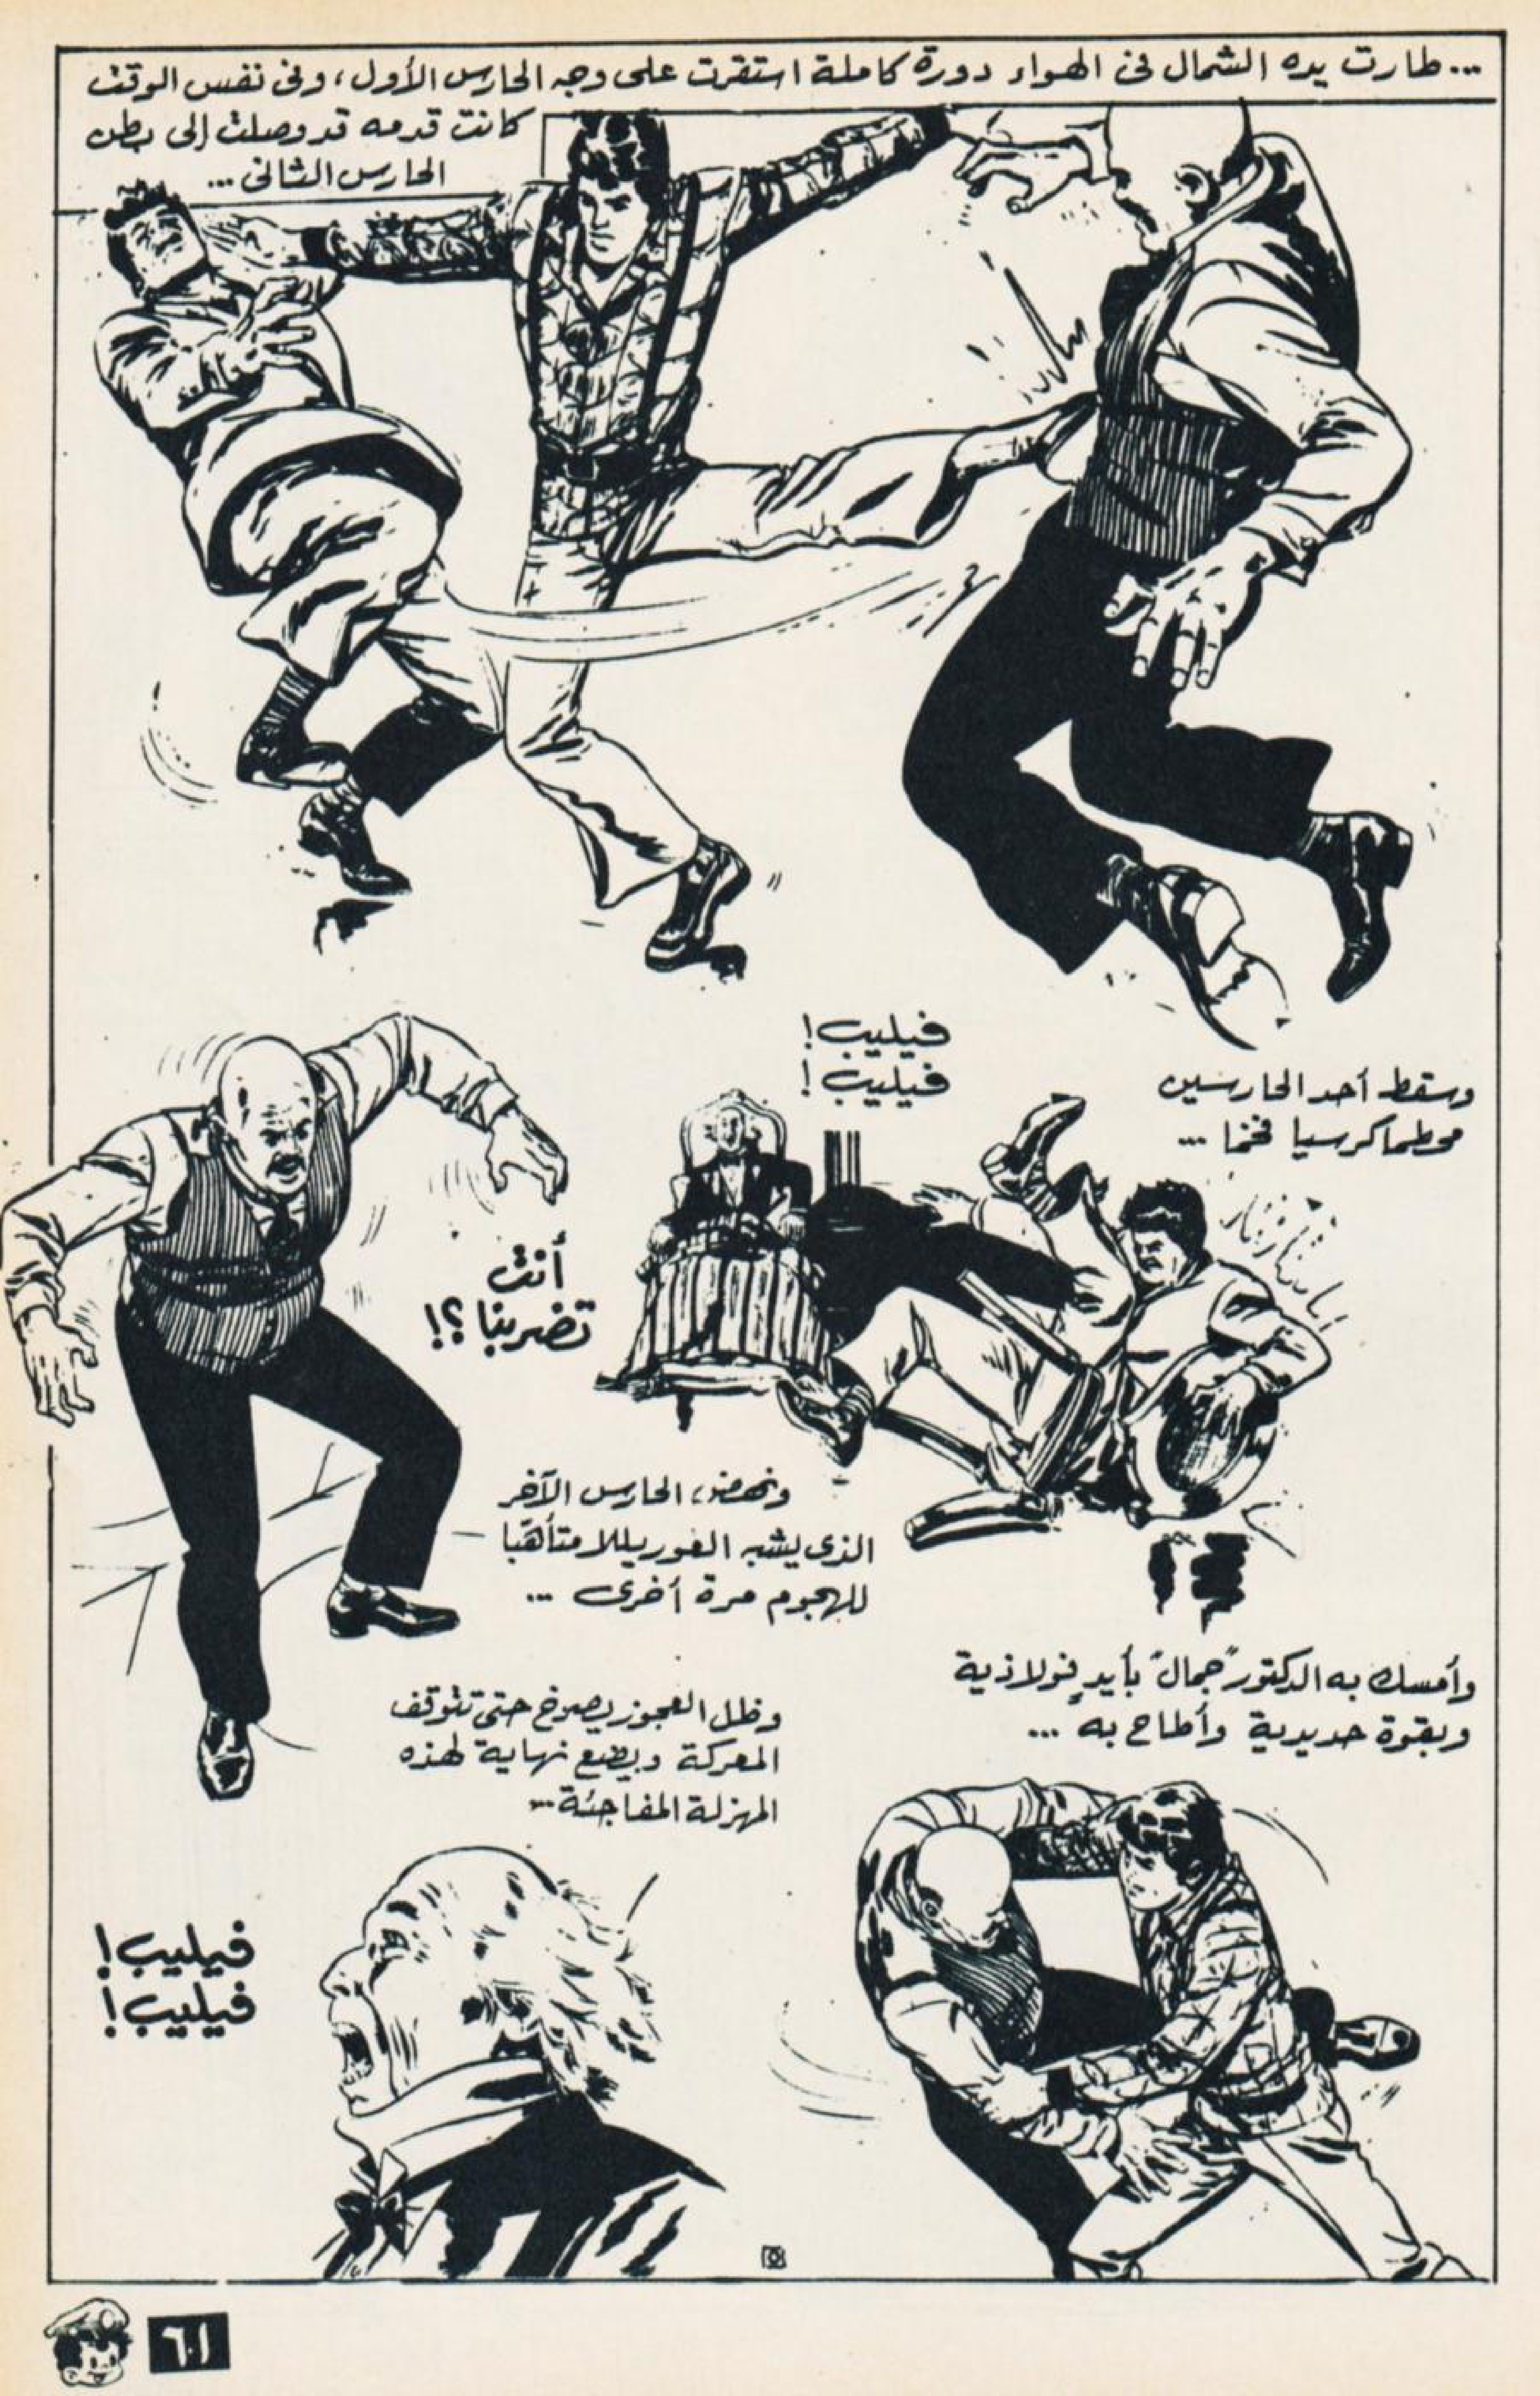 ... طارت يده الشمال فى الهواء دورة كاملة استقرت على وجه الحارس الأول، وفى نفس الوقت
كانت قدمه قد وصلت إلى بطن
الحارس الثانى ...
فيليب!
فيليب!
وسقط أحد الحارسين
محطما كرسيا فخما ...
أنت
تضربنا ؟!
ونهض الحارس الآخر
الذى يشبه الغوريللا متأهبا
للهجوم مرة أخرى ...
وأمسك به الدكتور "جمال" بأيدٍ فولاذية
وبقوة حديدية وأطاح به ...
وظل العجوز يصرخ حتى تتوقف
المعركة ويضع نهاية لهذه
المهزلة المفاجئة ...
فيليب!
فيليب!
٦١